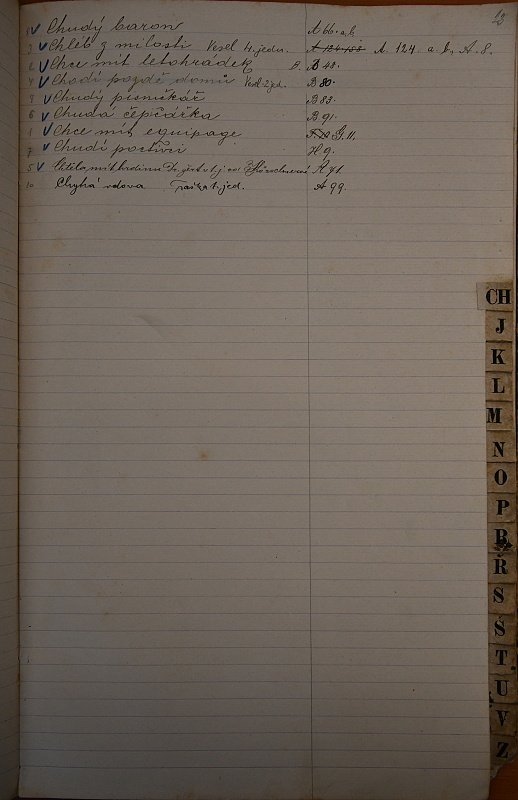 12
v Chudý baron A 66. a.b.
3 v Chléb z milosti Vesel. 4. jedn. A 124.188 A. 124 a. b, A. 8.
2 v Chce mít letohrádek B. B 48.
4 v Chodí pozdě domů Vesel. 2 jed. B 80.
9 v Chudý písničkář B 83.
6 v Chudá čepčářka B 91.
1 v Chce mít equipage G. 11.
7 v Chudí poctivci H 9.
5 v Chtěla mít hrdinu v 1 j. od R 71.
10 Chytrá vdova Fraška 1. jed. A 99.
CH
J
K
L
M
N
O
P
R
Ř
S
Š
T
U
V
Z